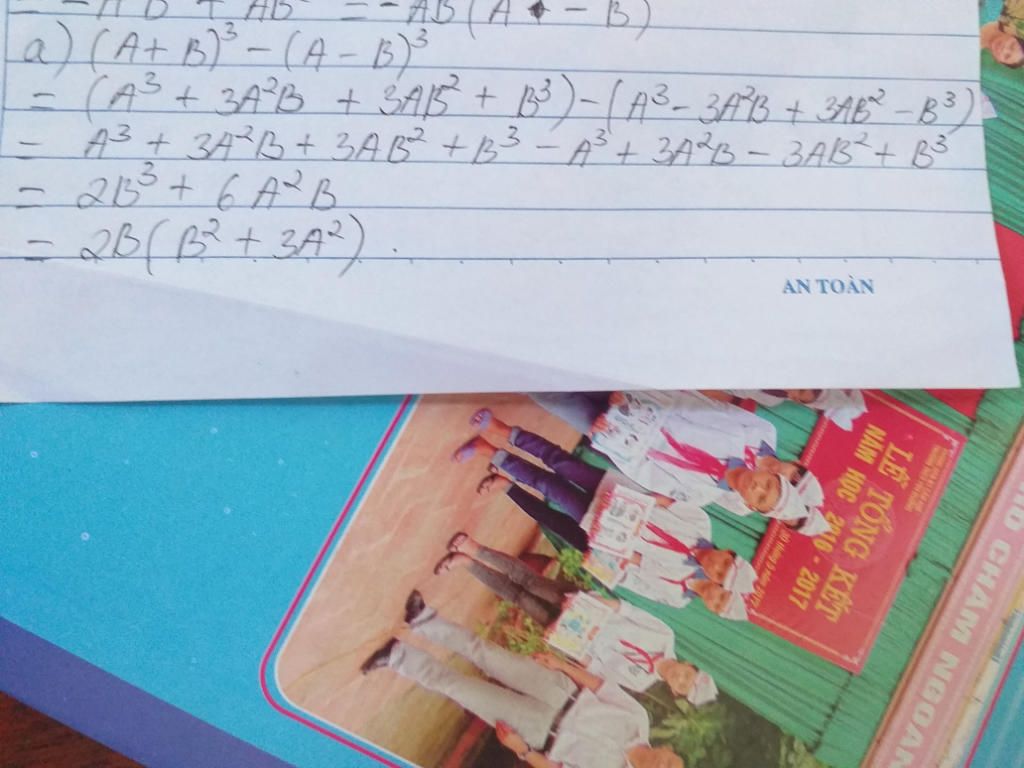 = -AB(A - B)
a) (A + B)³ - (A - B)³
= (A³ + 3A²B + 3AB² + B³) - (A³ - 3A²B + 3AB² - B³)
= A³ + 3A²B + 3AB² + B³ - A³ + 3A²B - 3AB² + B³
= 2B³ + 6A²B
= 2B(B² + 3A²).
AN TOÀN
LỄ TỔNG KẾT
NĂM HỌC 2016 - 2017
CHĂM NGOAN